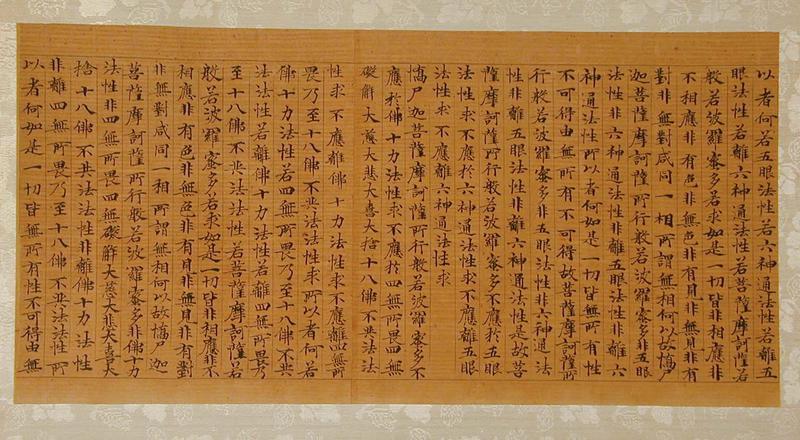 以者何若五眼法性若六神通法性若離五
眼法性若離六神通法性若菩薩摩訶薩若
般若波羅蜜多若求如是一切皆非相應非
不相應非有色非無色非有見非無見非有
對非無對咸同一相所謂無相何以故憍尸
迦菩薩摩訶薩所行般若波羅蜜多非五眼
法性非六神通法性非離五眼法性非離六
神通法性所以者何如是一切皆無所有性
不可得由無所有不可得故菩薩摩訶薩所
行般若波羅蜜多非五眼法性非六神通法
性非離五眼法性非離六神通法性是故菩
薩摩訶薩所行般若波羅蜜多不應於五眼
法性求不應於六神通法性求不應離五眼
法性求不應離六神通法性求
憍尸迦菩薩摩訶薩所行般若波羅蜜多不
應於佛十力法性求不應於四無所畏四無
礙解大慈大悲大喜大捨十八佛不共法法
性求不應離佛十力法性求不應離四無所
畏乃至十八佛不共法法性求所以者何若
佛十力法性若四無所畏乃至十八佛不共
法法性若離佛十力法性若離四無所畏乃
至十八佛不共法法性若菩薩摩訶薩若
般若波羅蜜多若求如是一切皆非相應非不
相應非有色非無色非有見非無見非有對
非無對咸同一相所謂無相何以故憍尸迦
菩薩摩訶薩所行般若波羅蜜多非佛十力
法性非四無所畏四無礙解大慈大悲大喜大
捨十八佛不共法法性非離佛十力法性
非離四無所畏乃至十八佛不共法法性所
以者何如是一切皆無所有性不可得由無